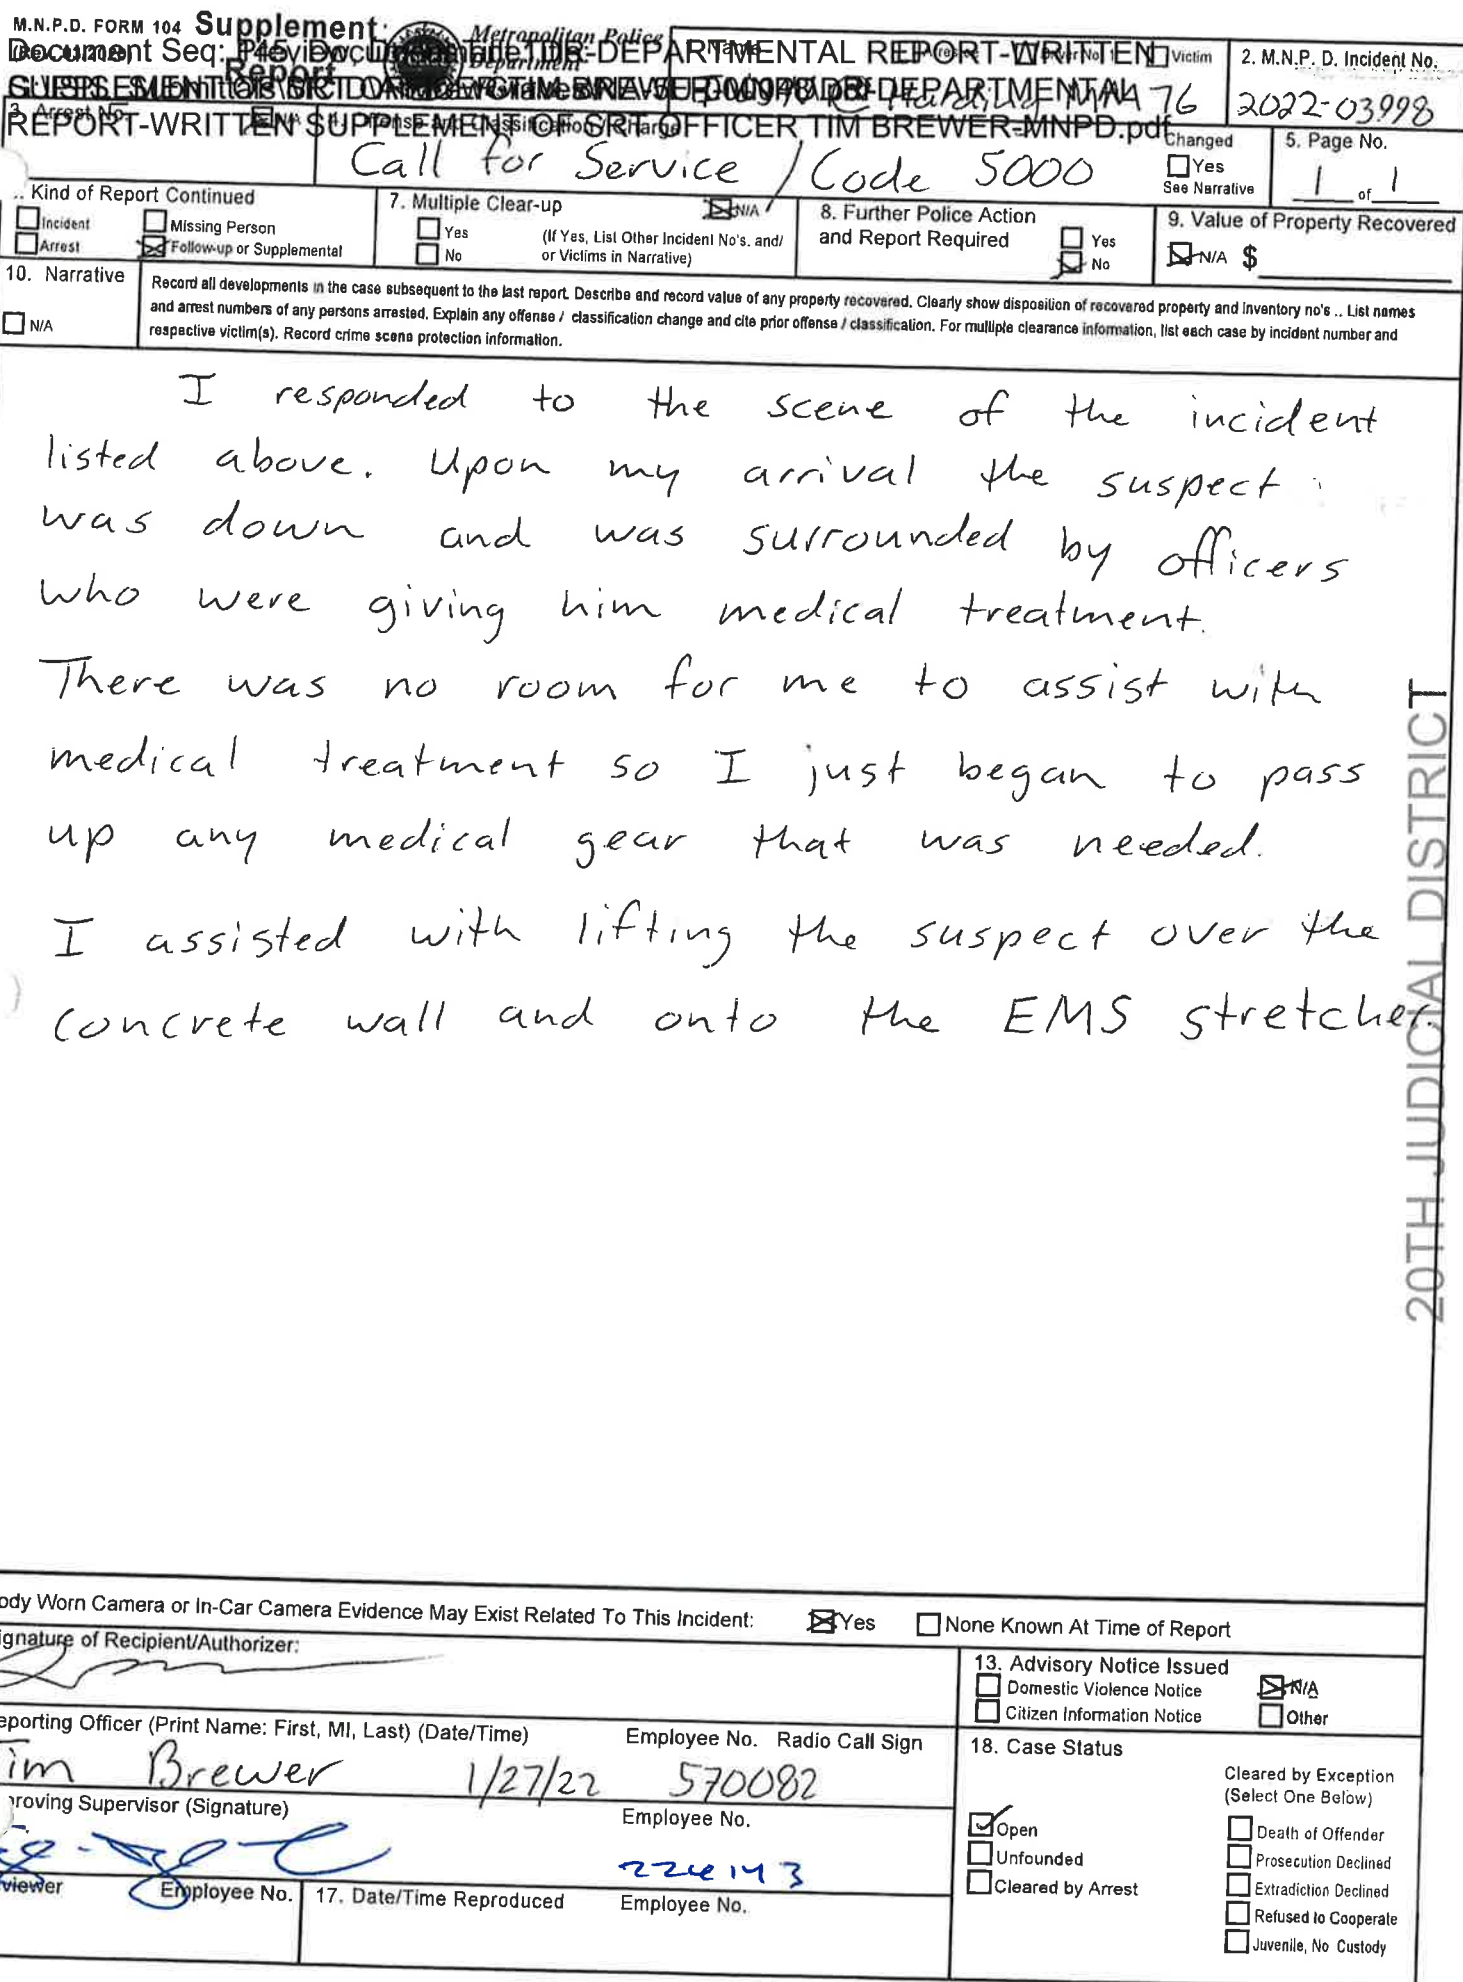 M.N.P.D. FORM 104 Supplement
Report
Metropolitan Police
Department
Victim
2. M.N.P. D. Incident No.
Document Seq:
DEPARTMENTAL REPORT-WRITTEN
76
2022-03998
3. Arrest No.
REPORT-WRITTEN SUPPLEMENT OF SRT OFFICER TIM BREWER-MNPD.pdf
Call for Service / Code 5000
Changed
Yes
See Narrative
5. Page No.
1 of 1
Kind of Report Continued
Incident
Missing Person
Arrest
Follow-up or Supplemental
7. Multiple Clear-up
N/A
Yes
No
(If Yes, List Other Incident No's. and/
or Victims in Narrative)
8. Further Police Action
and Report Required
Yes
No
9. Value of Property Recovered
N/A $
10. Narrative
N/A
Record all developments in the case subsequent to the last report. Describe and record value of any property recovered. Clearly show disposition of recovered property and inventory no's .. List names
and arrest numbers of any persons arrested. Explain any offense / classification change and cite prior offense / classification. For multiple clearance information, list each case by incident number and
respective victim(s). Record crime scene protection information.
I responded to the scene of the incident
listed above. Upon my arrival the suspect
was down and was surrounded by officers
who were giving him medical treatment.
There was no room for me to assist with
medical treatment so I just began to pass
up any medical gear that was needed.
I assisted with lifting the suspect over the
concrete wall and onto the EMS stretcher.
20TH JUDICIAL DISTRICT
ody Worn Camera or In-Car Camera Evidence May Exist Related To This Incident:
Yes
None Known At Time of Report
ignature of Recipient/Authorizer:
13. Advisory Notice Issued
Domestic Violence Notice
N/A
Citizen Information Notice
Other
eporting Officer (Print Name: First, MI, Last) (Date/Time)
Employee No. Radio Call Sign
Tim Brewer 1/27/22 570082
18. Case Status
Cleared by Exception
(Select One Below)
Open
Unfounded
Cleared by Arrest
Death of Offender
Prosecution Declined
Extradition Declined
Refused to Cooperate
Juvenile, No Custody
proving Supervisor (Signature)
Employee No.
viewer
Employee No.
17. Date/Time Reproduced
Employee No.